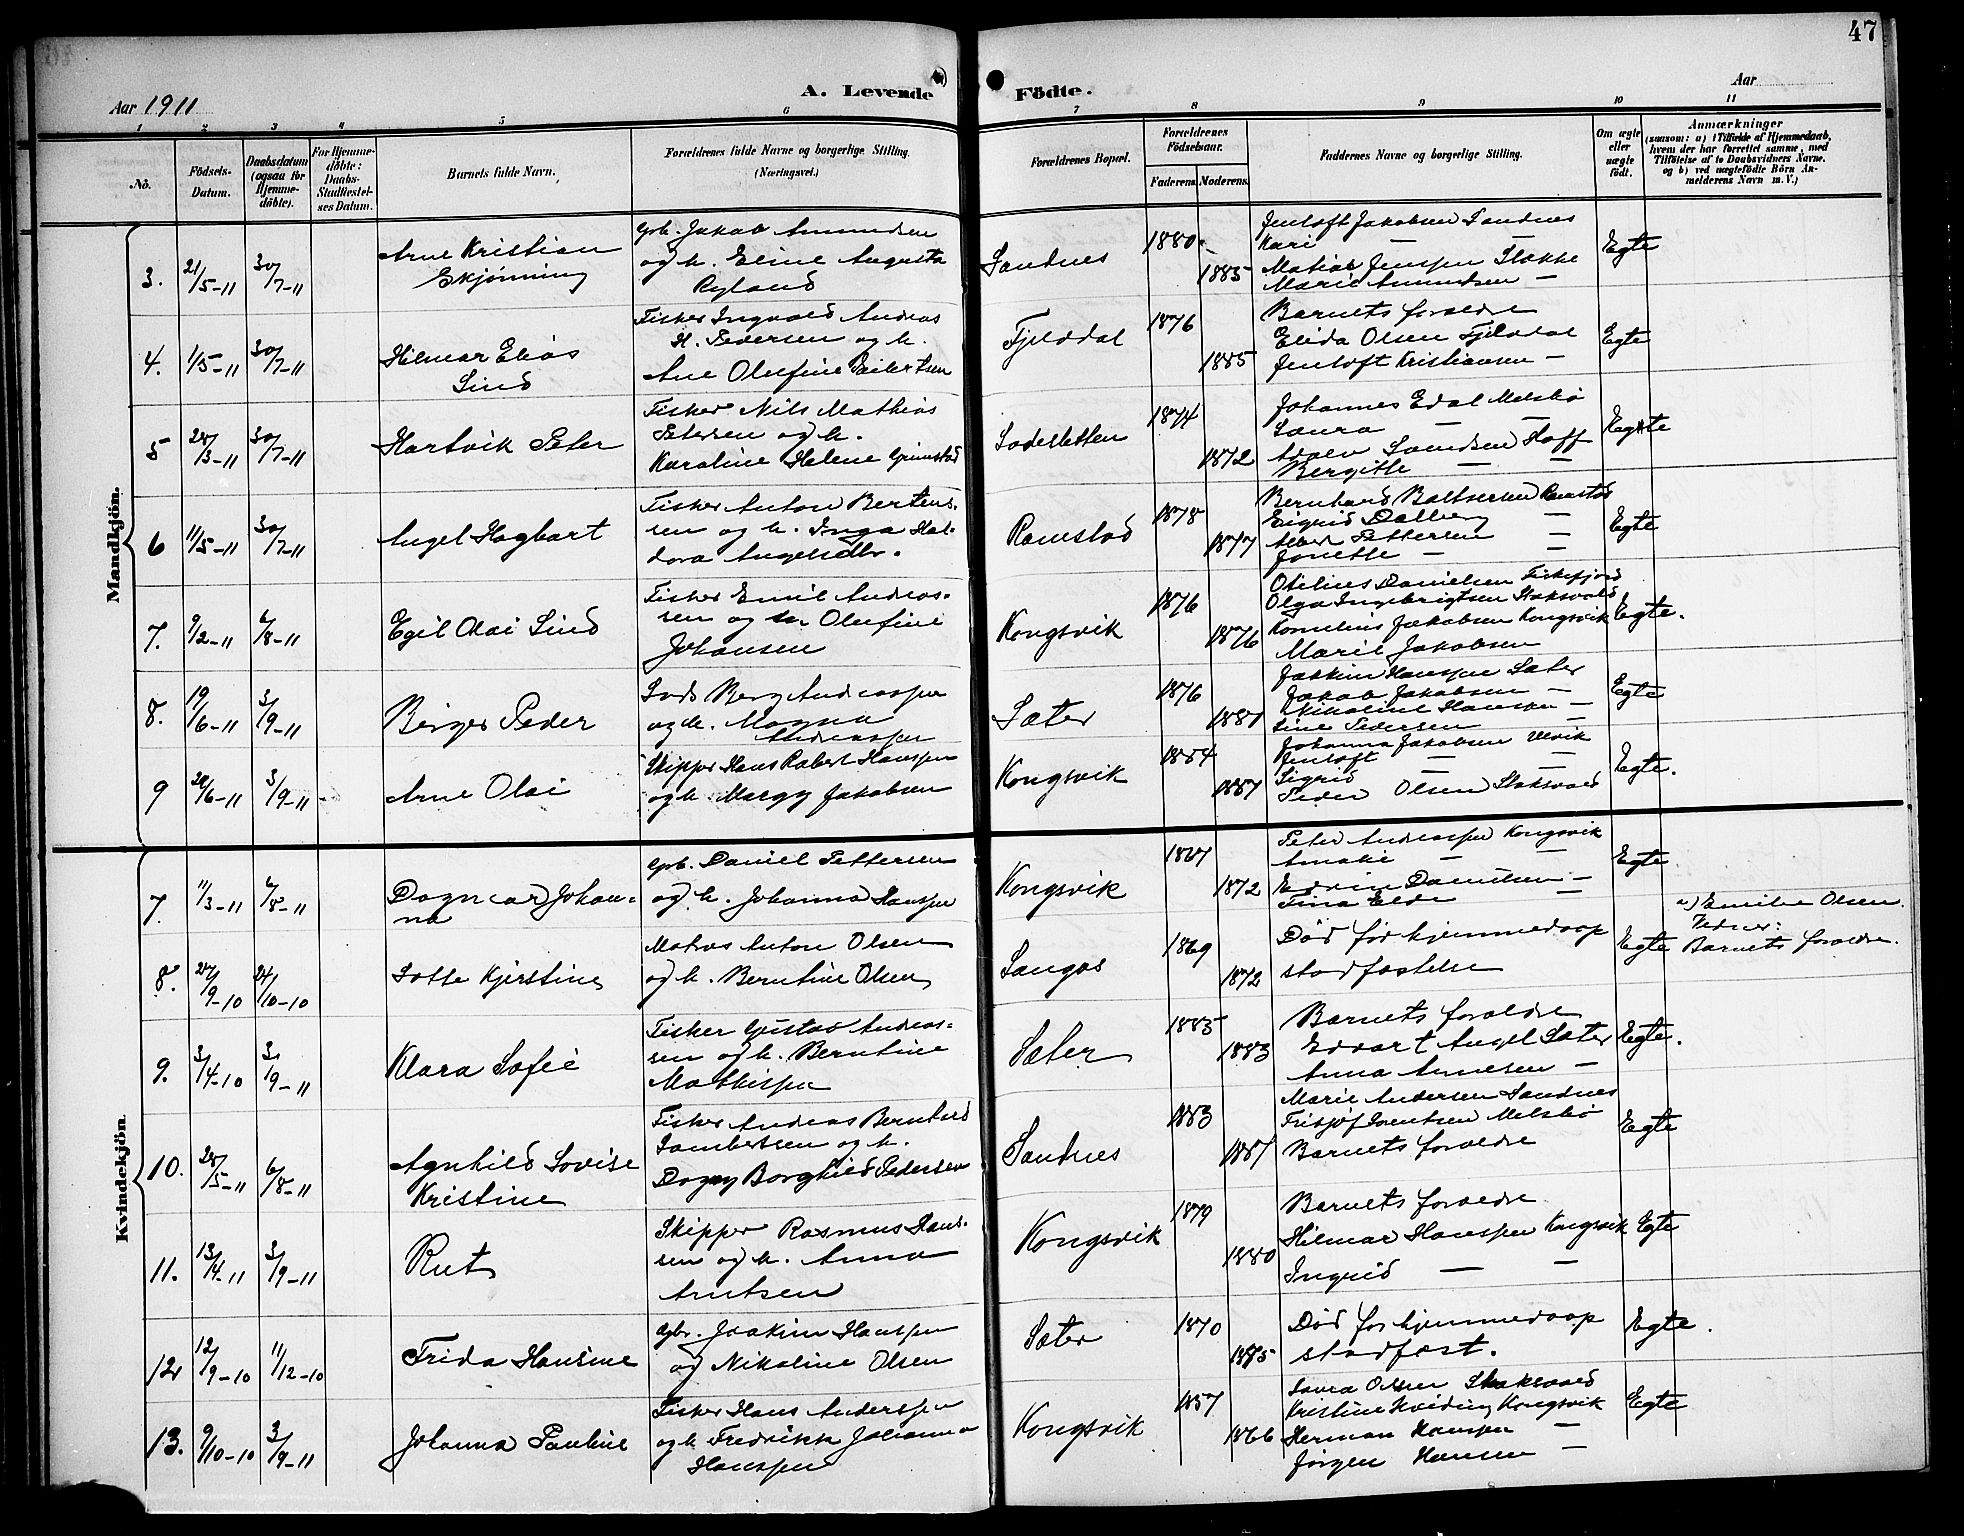 47
Aar 1911
A. Levende
Födte.
Aar
1 2 3 4 5 6 7 8 9 10 11
No.
Födsels-Datum.
Daabsdatum (ogsaa for Hjemme-döbte).
For Hjemme-döbte: Daabs-Stadfæstel-ses Datum.
Barnets fulde Navn.
Forældrenes fulde Navne og borgerlige Stilling. (Næringsvei.)
Forældrenes Bopæl.
Forældrenes Födselsaar.
Faderens. Moderens.
Faddernes Navne og borgerlige Stilling.
Om ægte eller uægte födt.
Anmærkninger
(saasom: a) i Tilfælde af Hjemmedaab, hvem der har forrettet samme, med Tilföielse af to Daabsvidners Navne. og b) ved uægtefödte Börn An-melderens Navn m. V.)
Mandkjön.
3. 21/5-11 30/7-11
Arne Kristian
Skjönning
Grb. Jakob Amundsen
og h. Eline Augusta
Ryland
Sandnes
1880
1885
Jentoft Jakobsen Sandnes
Kari — —
Jenssen Stokke
Marie Amundsen —
Egte
4. 1/5-11 30/7-11
Hilmar Elias
Sind
Fisker Ingvald Andreas
H. Pedersen og h.
Ane Olufine
Fjelddal
1876
1885
Barnets foreldre
Elida Olsen Fjeldal
Jentoft Kristiansen —
Egte
5 28/3-11 30/7-11
Hartvik Peter
Fisker Nils Mathias
Petersen og h.
Karoline Helene Grimstad
1874
1872
Johannes Edal Melsbö
Laura — —
Hoff
Bergitte — —
Egte
6 11/5-11 30/7-11
Angel Hagbart
Fisker Anton Bertens-
sen og h. Inga Hal-
dora
Ramstad
1878
1877
Bernhard Baltsersen Ramstad
Sigrid Dalberg —
Pettersen —
Jonette — —
Egte
7. 9/2-11 6/8-11
Egil Olai Sind
Fisker Emil Andreas-
sen og h. Olufine
Johansen
Kongsvik
1876
1876
Otelius Danielsen Fiskefjord
Olga Ingebrigtsen Stoksvold
Kornelius Jakobsen Kongsvik
Marie Jakobsen
Egte.
8. 19/6-11 3/9-11
Birger Peder
Berg Andreassen
og h. Magna
Andreassen
Sæter
1876
1887
Joakim Hanssen Sæter
Jakob Jakobsen —
Nikoline Hanssen —
Line Pedersen —
Egte
9 20/6-11 3/9-11
Arne Olai
Skipper Hans Robert Hanssen
og h. Margy Jakobsen
Kongsvik
1884
1887
Johanna Jakobsen Ulvik
Jentoft — —
Sigrid — —
Peder Olsen Stoksvold
Egte.
Kvindekjön.
7. 11/3-11 6/8-11
Dagmar Johan-
na
Grb. Daniel Pettersen
og h. Johanna Hanssen
Kongsvik
1867
1872
Peter Andreassen Kongsvik
Amalie — —
Edvin Danielsen —
Tina —
Egte
8. 27/9-10 24/10-10
Lotte Kjerstine
Matros Anton Olsen
og h. Berntine Olsen
1869
1872
Död för hjemmedaap
stadfæstelse
Egte
a) Emilie Olsen.
Vidner:
Barnets foreldre.
9. 3/4-10 3/9-11
Klara Sofie
Fisker Gustav Andreas-
sen og h. Berntine
Mathissen
Sæter
1885
1883
Barnets foreldre
Edvart Angel Sæter
Anna Arnesen —
Egte.
10. 28/5-11 6/8-11
Agnhild Lovise
Kristine
Fisker Andreas Bernhard
Lambertsen og h.
Dagny Borghild Pedersen
Sandnes
1883
1887
Marie Andersen Sandnes
Fritjof Lorentsen Melsbö
Barnets foreldre
Egte
11. 13/4-11 3/9-11
Rut
Skipper Rasmus Hans-
sen og h. Anna
Arntsen
Kongsvik
1879
1880
Barnets foreldre
Hilmar Hanssen Kongsvik
Ingrid — —
Egte
12 12/9-10 11/12-10
Frida Hansine
Gbr. Joakim Hanssen
og Nikoline Olsen
Sæter
1870
1875
Död för hjemmedaap
stadfæst.
Egte.
13. 9/10-10 3/9-11
Johanna Pauline
Fisker Hans Anderssen
og h. Fredrikk Johanna
Hanssen
Kongsvik
1857
1866
Laura Olsen Stoksvold
Kristine Hveding Kongsvik
Herman Hanssen —
Jörgen Hansen —
Egte